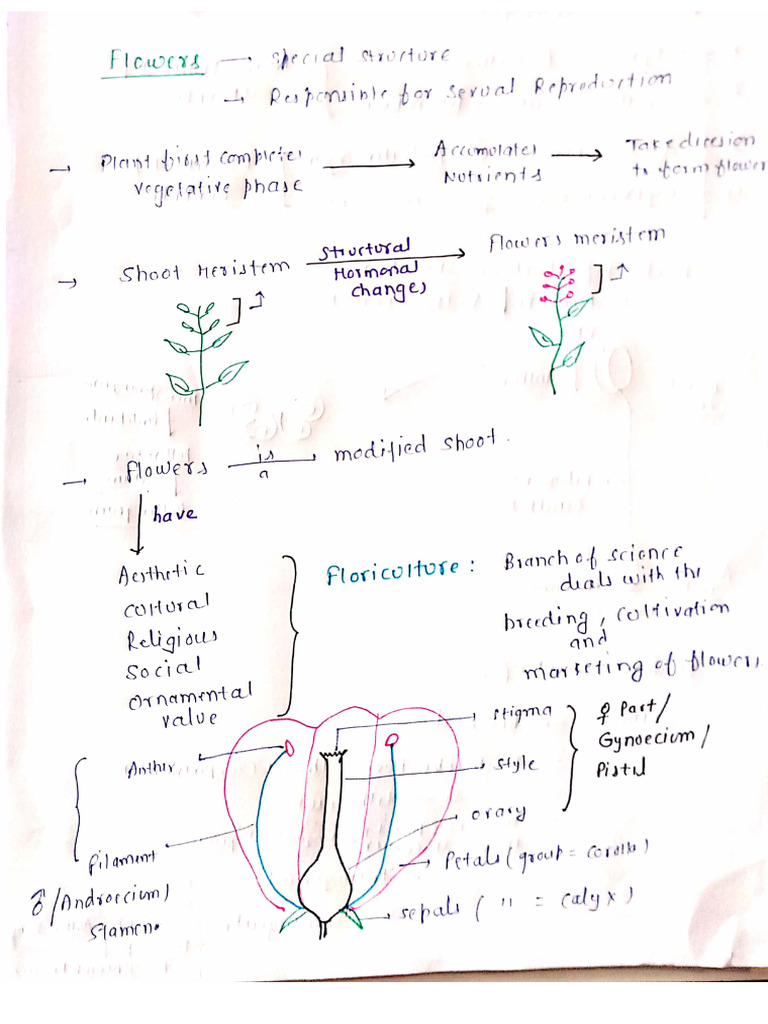 Flowers → special structure
→ Responsible for sexual Reproduction
→ Plant first completes vegetative phase → Accumulates Nutrients → Take dicesion to form flower
→ Shoot Meristem Structural Hormonal changes → Flowers meristem
→ flowers is a → modified shoot.
have
Aesthetic
cultural
Religious
Social
Ornamental
value
Floriculture : Branch of science
deals with the
breeding, cultivation
and
marketing of flowers
stigma
♀ Part/
Gynoecium/
Pistil
Anther
style
ovary
filament
Petals (group = corolla)
♂/Androecium/
Stamen
sepals ( " = calyx)